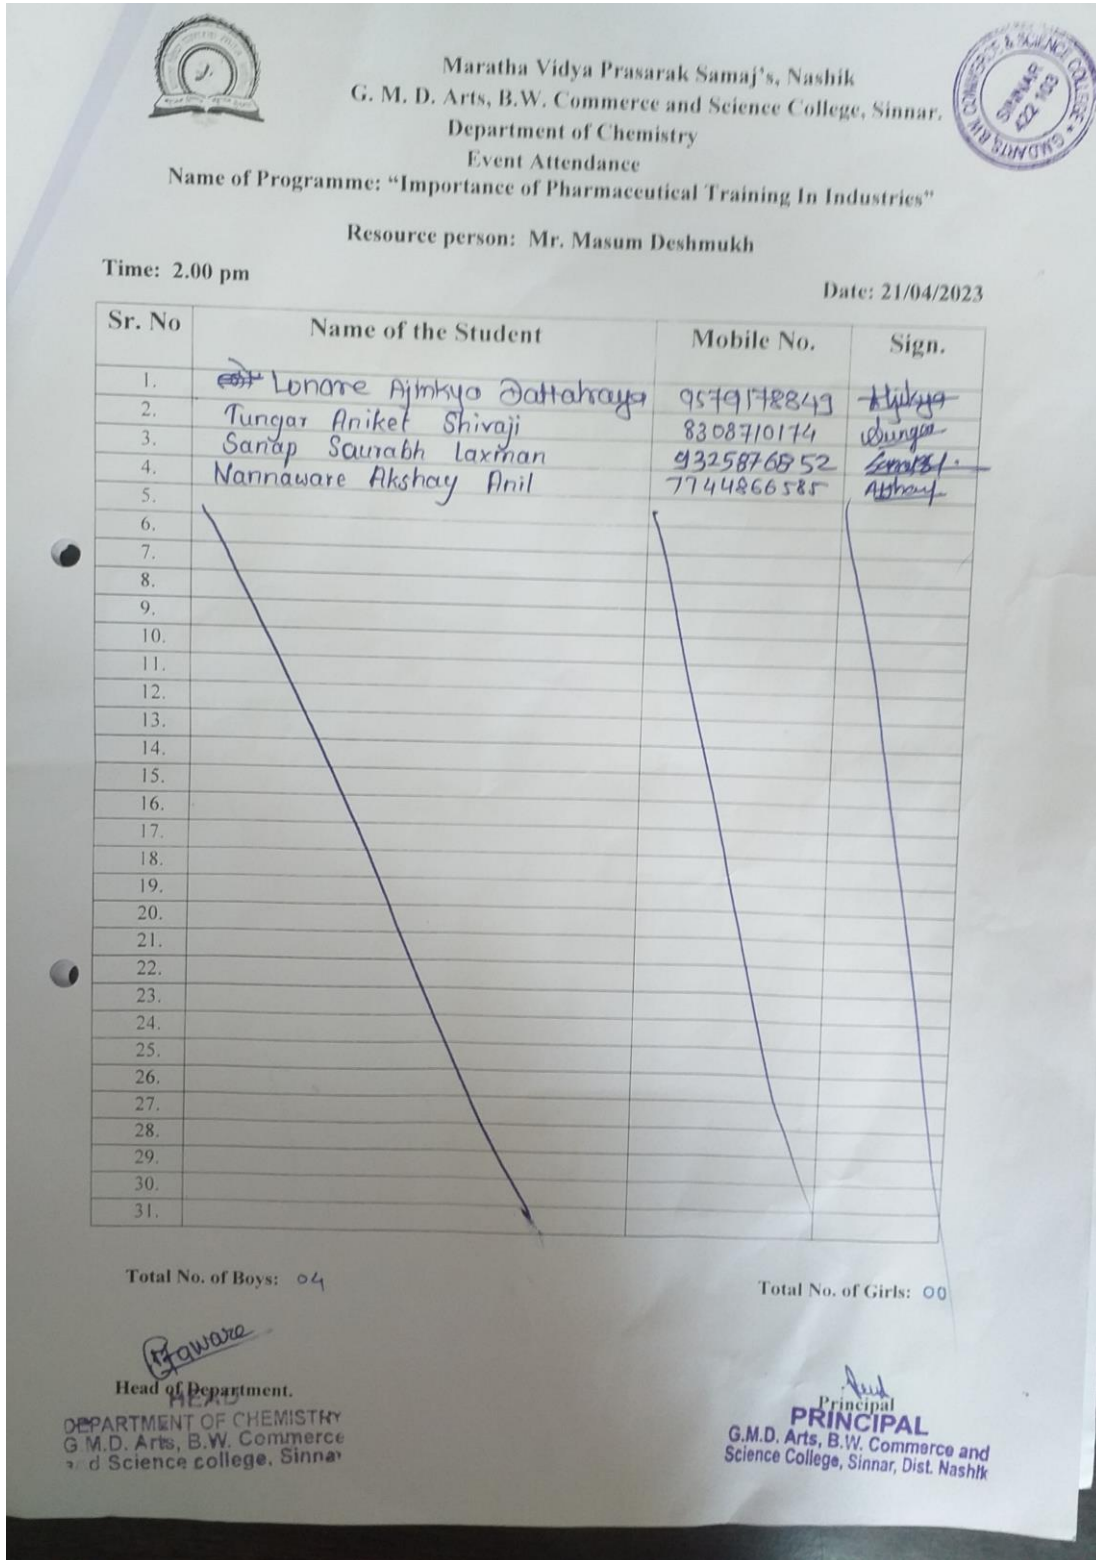 Maratha Vidya Prasarak Samaj's, Nashik
G. M. D. Arts, B.W. Commerce and Science College, Sinnar.
Department of Chemistry
Event Attendance
Name of Programme: “Importance of Pharmaceutical Training In Industries”
Resource person: Mr. Masum Deshmukh
Time: 2.00 pm
Date: 21/04/2023
G.M.D ARTS, B.W. COMMERCE & SCIENCE COLLEGE *
SINNAR
422 103
Sr. No Name of the Student Mobile No. Sign.
1. Lonare Ajinkya Dattatraya 9579178849 Ajinkya
2. Tungar Aniket Shivaji 8308710174
3. Sanap Saurabh Laxman 9325876852
4. Nannaware Akshay Anil 7744866585 Akshay
5.
6.
7.
8.
9.
10.
11.
12.
13.
14.
15.
16.
17.
18.
19.
20.
21.
22.
23.
24.
25.
26.
27.
28.
29.
30.
31.
Total No. of Boys: 04
Total No. of Girls: 00
Head of Department.
HEAD
DEPARTMENT OF CHEMISTRY
G.M.D. Arts, B.W. Commerce
and Science college, Sinnar
Principal
PRINCIPAL
G.M.D. Arts, B.W. Commerce and
Science College, Sinnar, Dist. Nashik